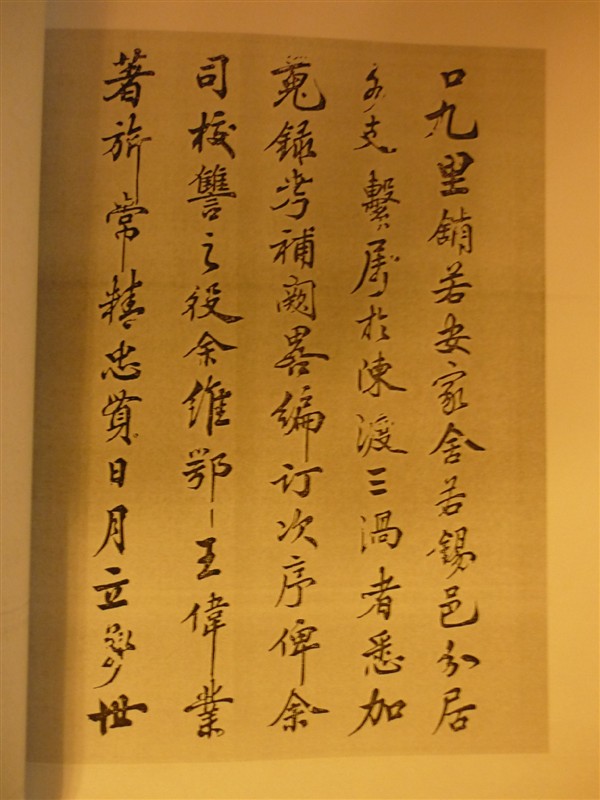 口九里鋪若安家舍若錫邑分居
多支繫屬於陳渡三渦者悉加
蒐錄考補闕畧編訂次序俾余
司校讐之役余維鄂王偉業
著旂常精忠貫日月立身世